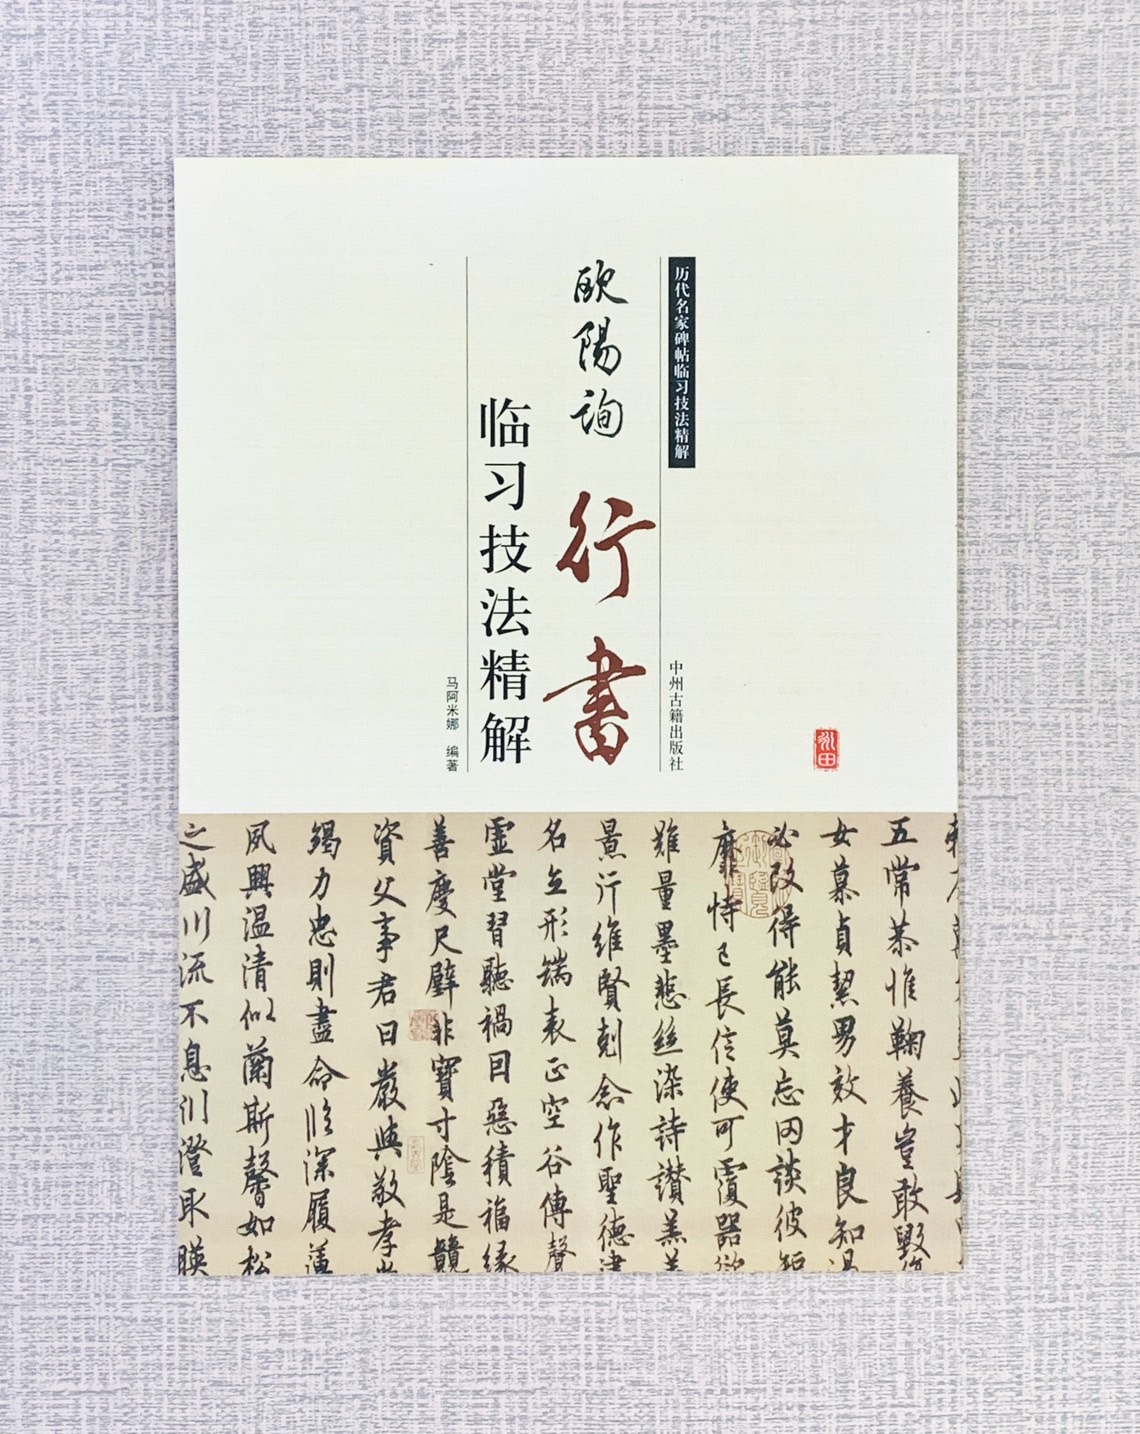 历代名家碑帖临习技法精解
中州古籍出版社
欧陽詢 行書
临习技法精解
马阿米娜 编著
五常恭惟鞠養豈敢毀
女慕貞絜男效才良知過
必改得能莫忘罔談彼短
靡恃己長信使可覆器欲
難量墨悲絲染詩讚羔羊
景行維賢剋念作聖德建
名立形端表正空谷傳聲
虛堂習聽禍因惡積福緣
善慶尺璧非寶寸陰是競
資父事君曰嚴與敬孝當
竭力忠則盡命臨深履薄
夙興温清似蘭斯馨如松
之盛川流不息川澄取暎